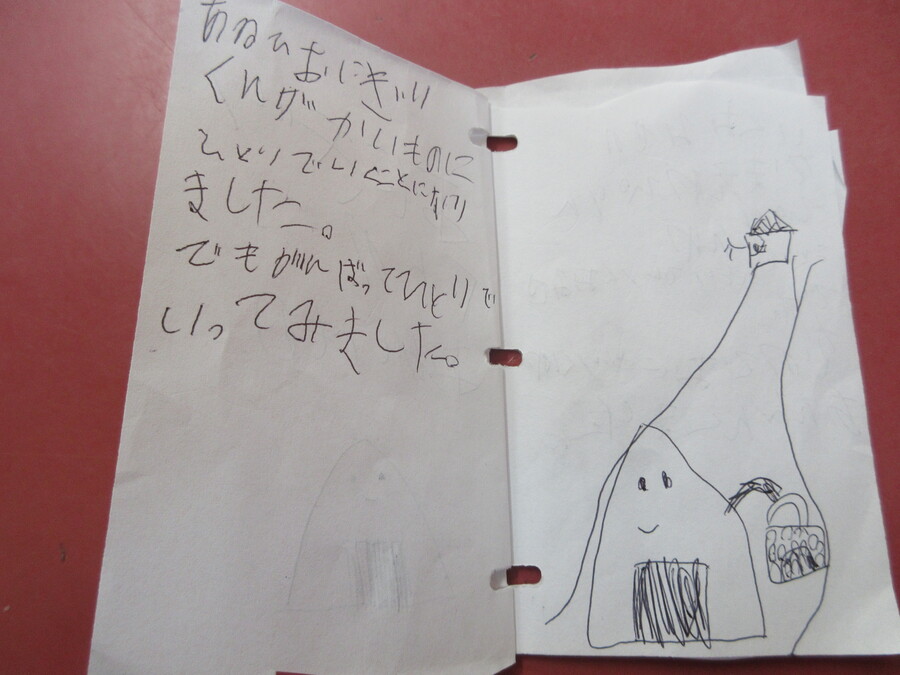 あるひおにぎり
くんが かいものに
ひとりでいくことになり
ました。
でもがんばってひとりで
いってみました。